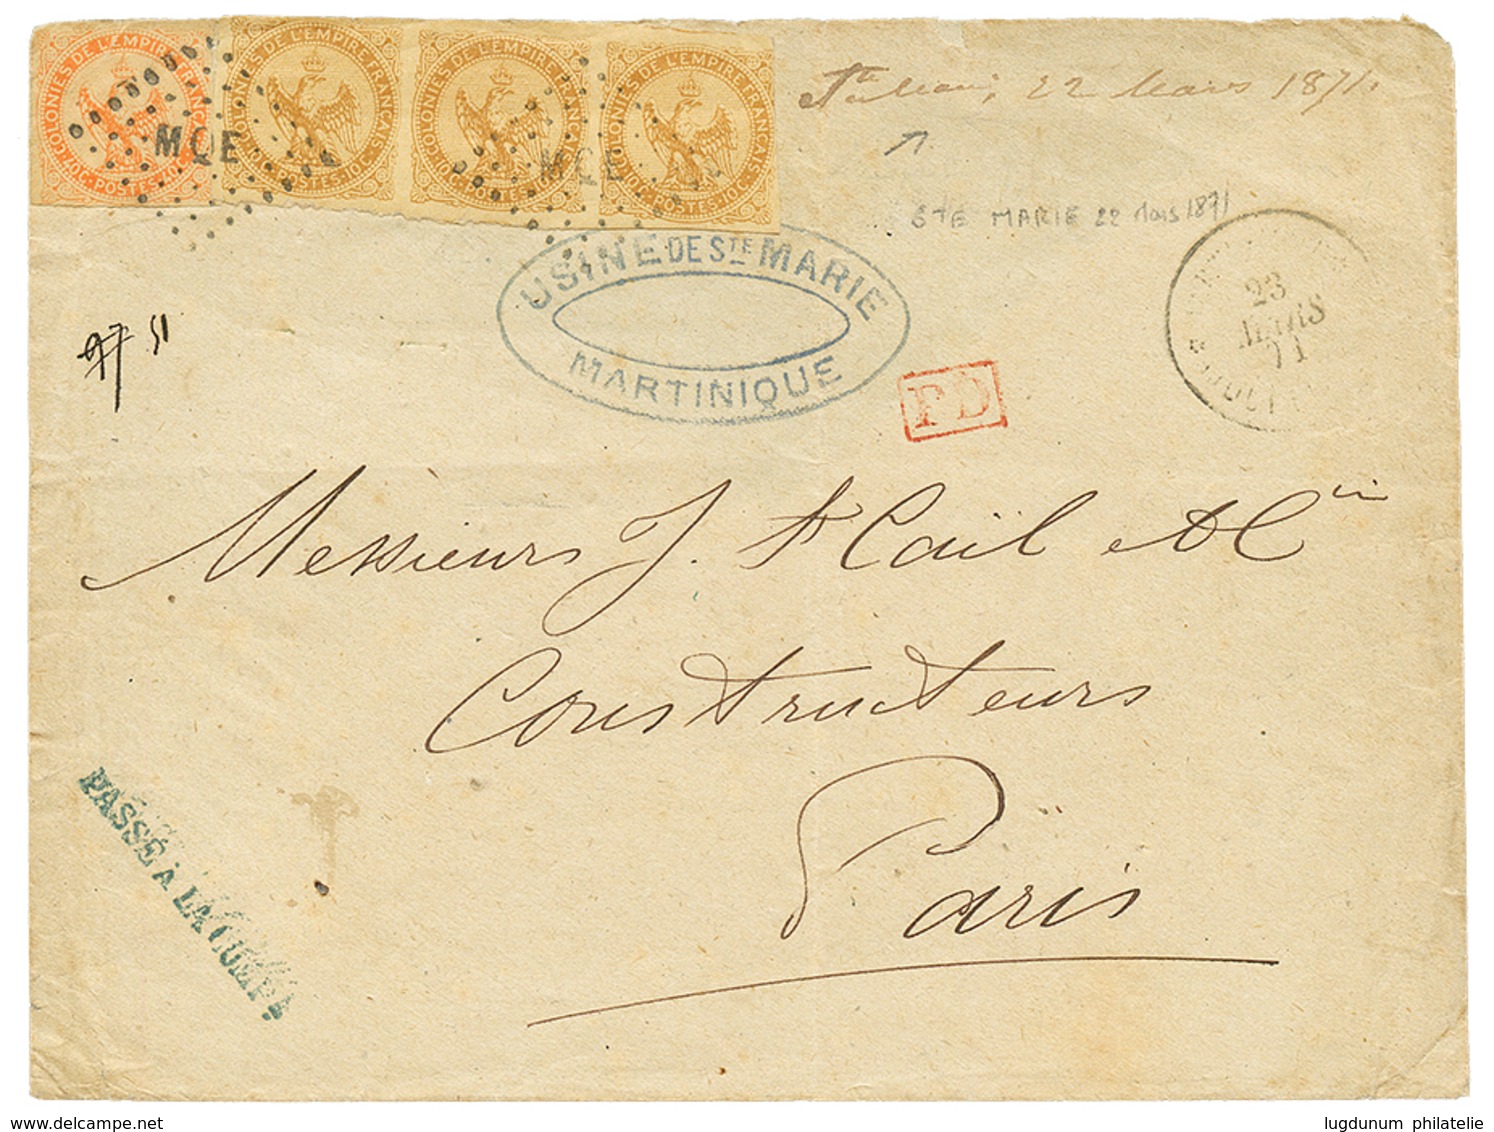 COLONIES DE L'EMPIRE FRANÇAISE 40C. POSTES 40C.
COLONIES DE L'EMPIRE FRANÇAISE 10C. POSTES 10C.
COLONIES DE L'EMPIRE FRANÇAISE 10C. POSTES 10C.
COLONIES DE L'EMPIRE FRANÇAISE 10C. POSTES 10C.
MQE
MQE
22 Mars 1871.
STE MARIE 22 Mars 1871
USINE DE STE MARIE
MARTINIQUE
23
MARS
71
PD
Messieurs J. F Cail et Cie
Constructeurs
Paris
PASSÉ À LA FUMIG
lugdunum philatelie